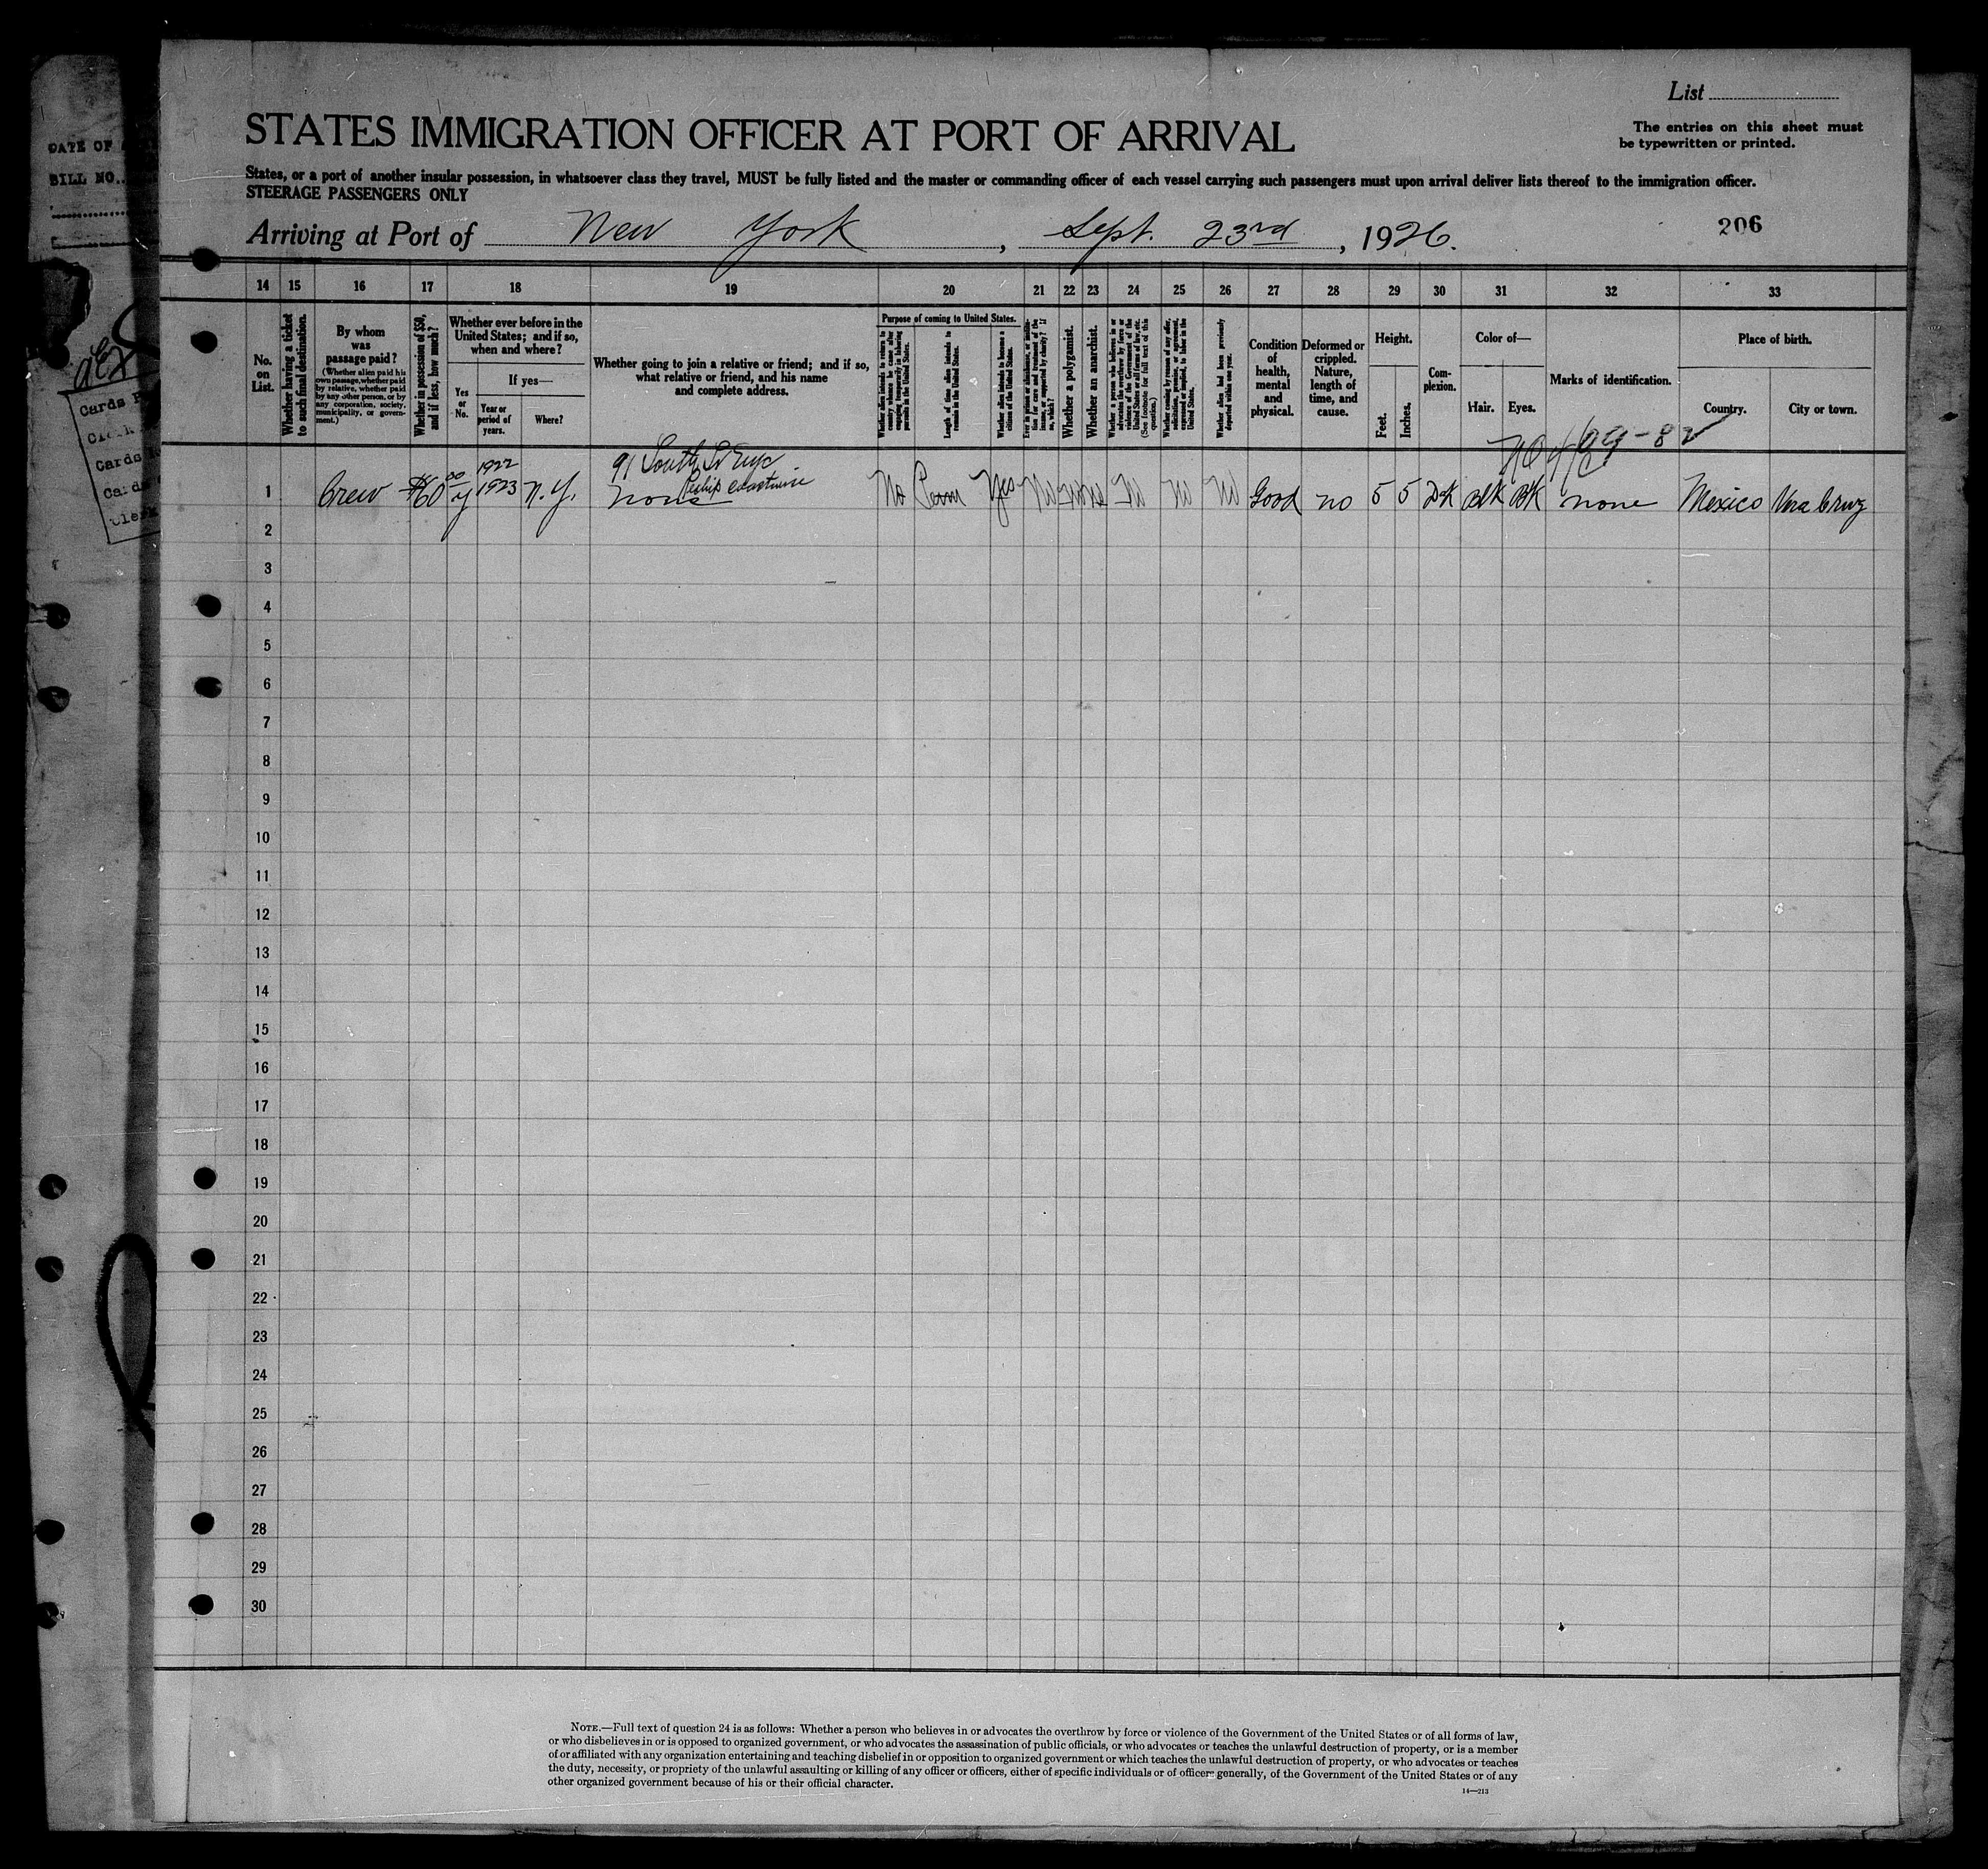 List
STATES IMMIGRATION OFFICER AT PORT OF ARRIVAL
The entries on this sheet must
be typewritten or printed.
States, or a port of another insular possession, in whatsoever class they travel, MUST be fully listed and the master or commanding officer of each vessel carrying such passengers must upon arrival deliver lists thereof to the immigration officer.
STEERAGE PASSENGERS ONLY
Arriving at Port of New York, Sept. 23rd, 1926.
206
DATE OF
BILL NO.
Cards
Clerk
Cards
14 15 16 17 18 19 20 21 22 23 24 25 26 27 28 29 30 31 32 33
No. on List.
Whether having a ticket to such final destination.
By whom was passage paid?
(Whether alien paid his own passage, whether paid by relative, whether paid by any other person, or by any corporation, society, municipality, or government.)
Whether in possession of $50, and if less, how much?
Whether ever before in the United States; and if so, when and where?
Yes or No.
If yes—
Year or period of years.
Where?
Whether going to join a relative or friend; and if so, what relative or friend, and his name and complete address.
Purpose of coming to United States.
Whether alien intends to return to country whence he came after engaging temporarily in laboring pursuits in the United States.
Length of time alien intends to remain in the United States.
Whether alien intends to become a citizen of the United States.
Whether a polygamist.
Whether an anarchist.
Whether coming by reason of any offer, solicitation, promise, or agreement, expressed or implied, to labor in the United States.
Whether alien had been previously deported within one year.
Condition of health, mental and physical.
Deformed or crippled. Nature, length of time, and cause.
Height.
Feet.
Inches.
Complexion.
Color of—
Hair.
Eyes.
Marks of identification.
Place of birth.
Country.
City or town.
91 South St NYC
1 Crew $60 00 y 1922 1923 N.Y. none No Perm Yes No No No No No No Good no 5 5 Dk Blk Blk none Mexico Vera Cruz
2
3
4
5
6
7
8
9
10
11
12
13
14
15
16
17
18
19
20
21
22
23
24
25
26
27
28
29
30
NOTE.—Full text of question 24 is as follows: Whether a person who believes in or advocates the overthrow by force or violence of the Government of the United States or of all forms of law,
or who disbelieves in or is opposed to organized government, or who advocates the assassination of public officials, or who advocates or teaches the unlawful destruction of property, or is a member
of or affiliated with any organization entertaining and teaching disbelief in or opposition to organized government or which teaches the unlawful destruction of property, or who advocates or teaches
the duty, necessity, or propriety of the unlawful assaulting or killing of any officer or officers, either of specific individuals or of officers generally, of the Government of the United States or of any
other organized government because of his or their official character.
14—213